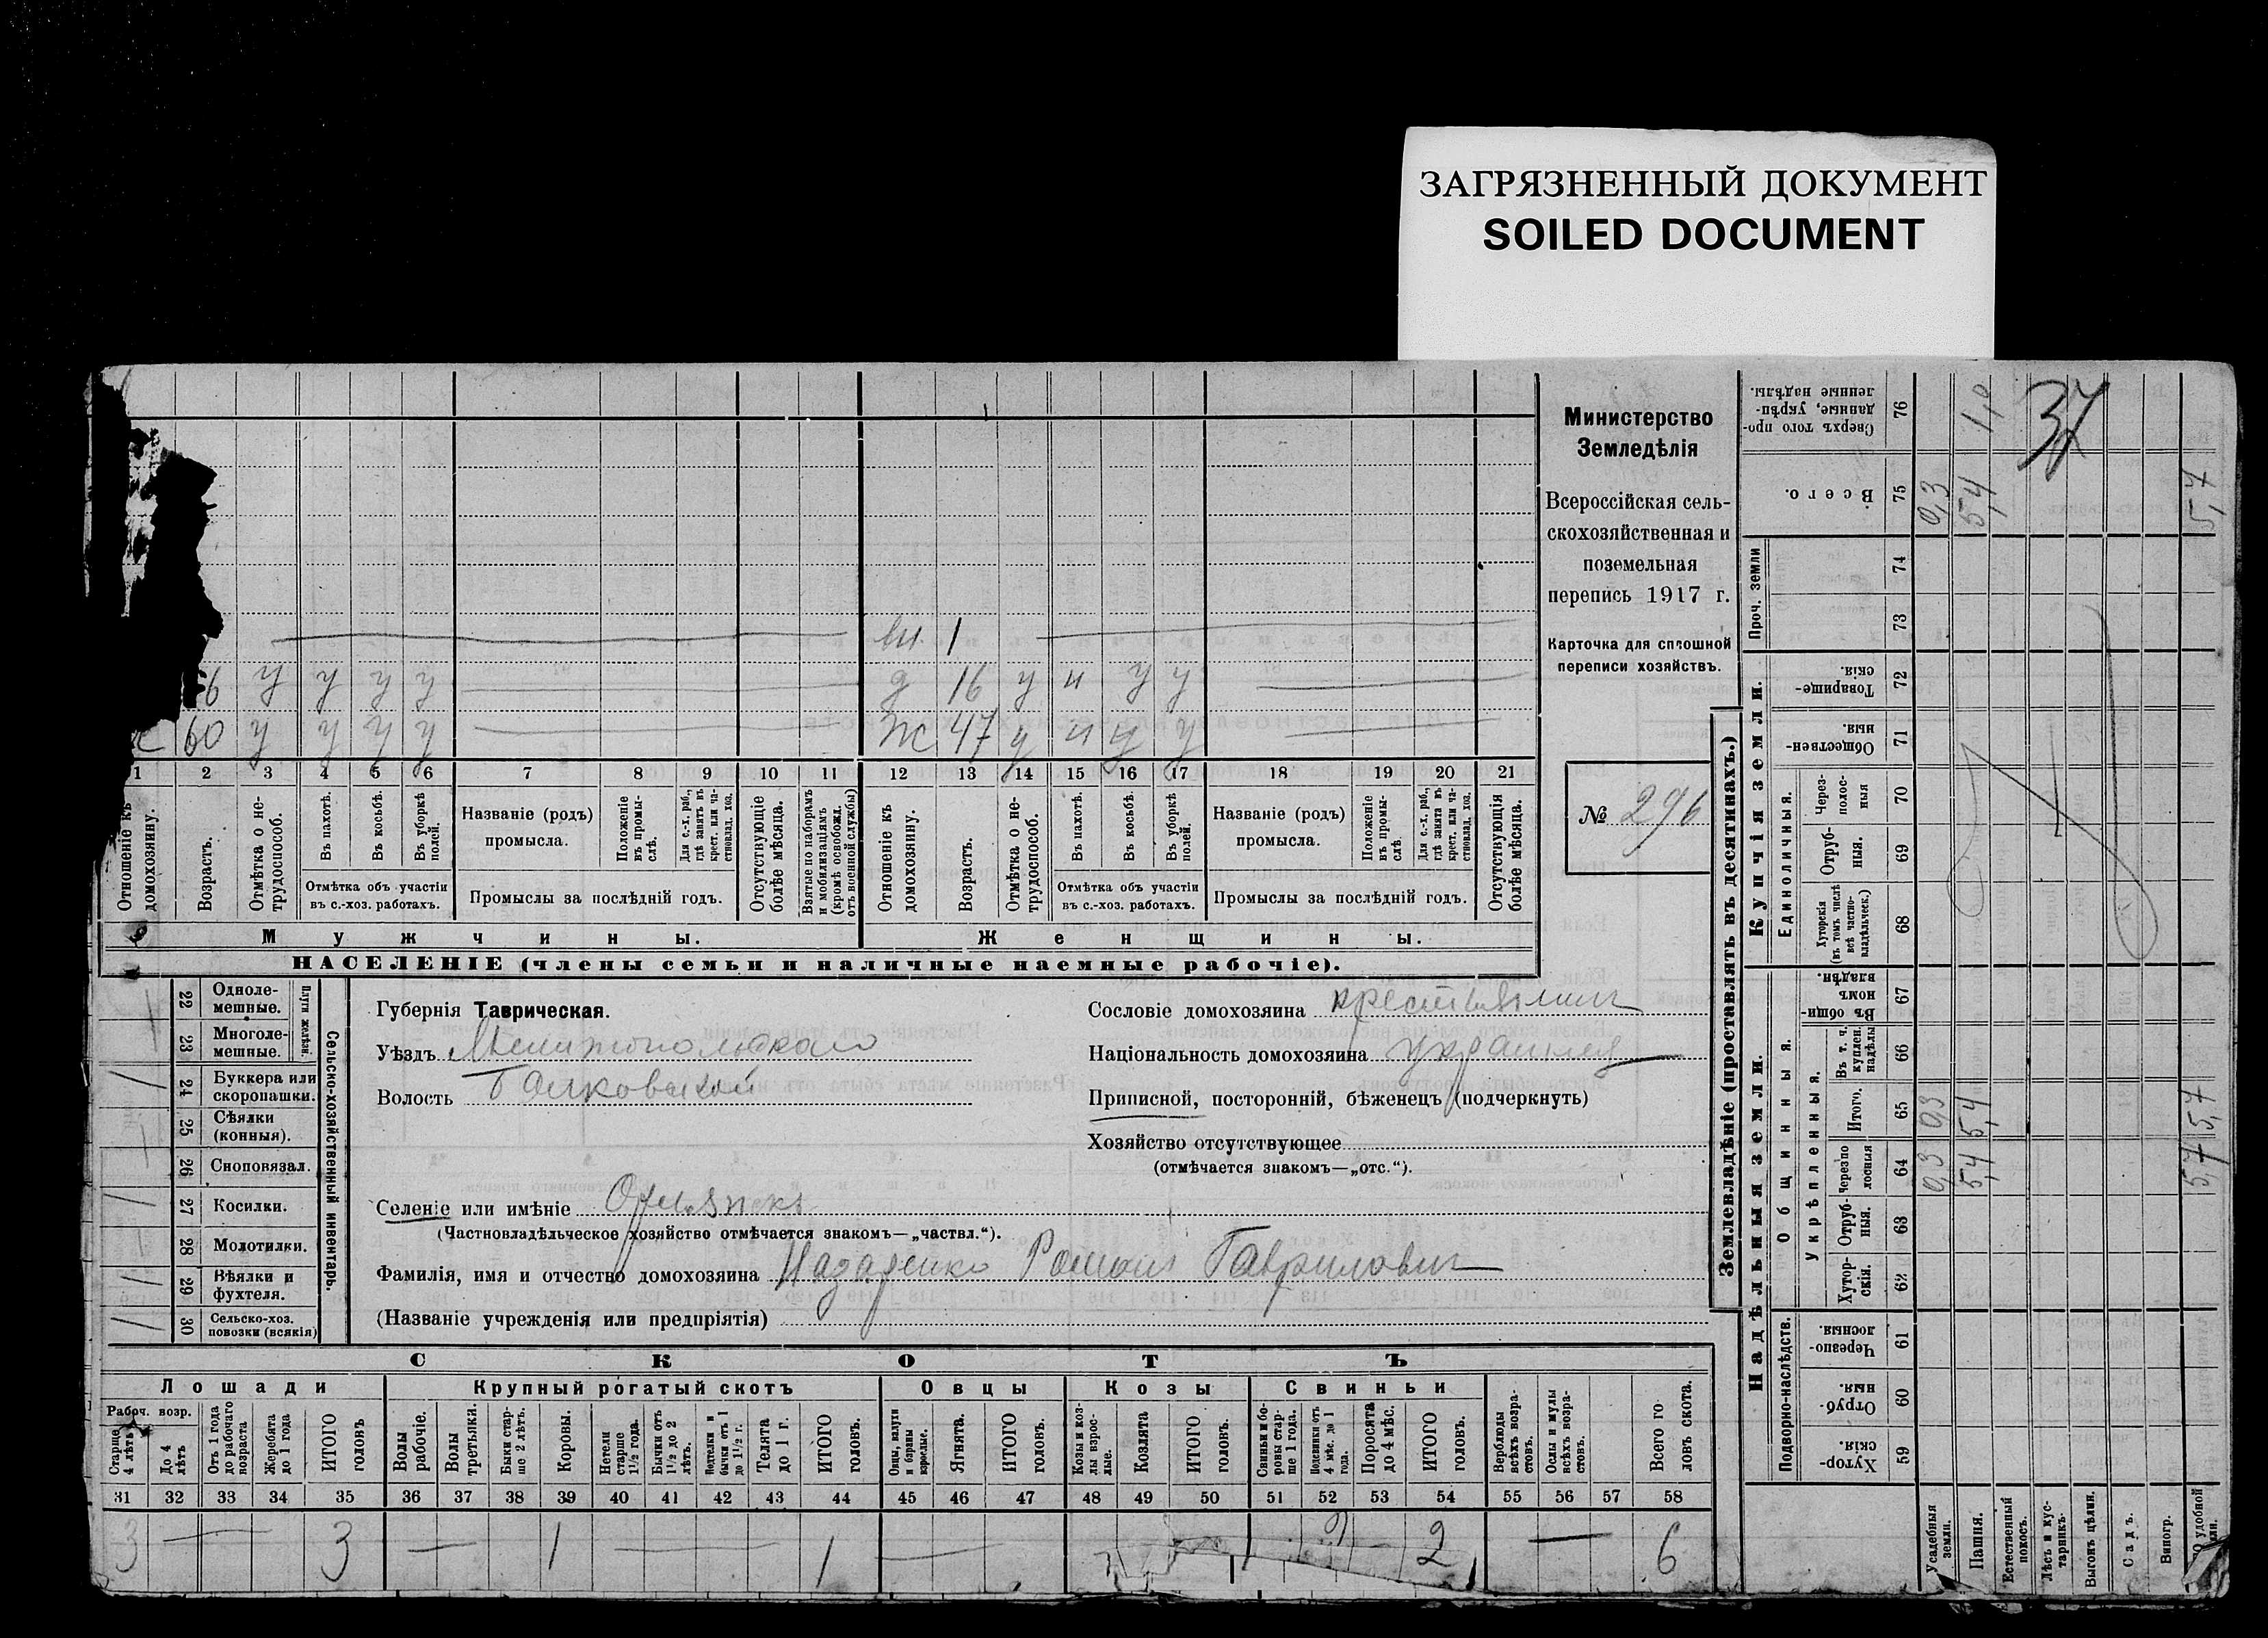 ЗАГРЯЗНЕННЫЙ ДОКУМЕНТ
SOILED DOCUMENT
Министерство
Земледѣлія
Всероссійская сель-
скохозяйственная и
поземельная
перепись 1917 г.
Карточка для сплошной
переписи хозяйствъ.
№ 296
вн 1
6 у у у у д 16 у н у у
60 у у у у ж 47 у н у у
1 2 3 4 5 6 7 8 9 10 11 12 13 14 15 16 17 18 19 20 21
Отношеніе къ домохозяину.
Возрастъ.
Отмѣтка о не-трудоспособ.
Въ пахотѣ.
Въ косьбѣ.
Въ уборкѣ полей.
Отмѣтка объ участіи
въ с.-хоз. работахъ.
Названіе (родъ)
промысла.
Положеніе въ промы-слѣ.
Для с.-х. раб., гдѣ занятъ въ крест. или ча-стновлад. хоз.
Промыслы за послѣдній годъ.
Отсутствующіе болѣе мѣсяца.
Взятые по наборамъ и мобилизаціямъ (кромѣ освобожд. отъ военной службы)
Отношеніе къ домохозяину.
Возрастъ.
Отмѣтка о не-трудоспособ.
Въ пахотѣ.
Въ косьбѣ.
Въ уборкѣ полей.
Отмѣтка объ участіи
въ с.-хоз. работахъ.
Названіе (родъ)
промысла.
Положеніе въ промы-слѣ
Для с.-х. раб., гдѣ занята въ крест. или ча-стновлад. хоз.
Промыслы за послѣдній годъ.
Отсутствующія болѣе мѣсяца.
Мужчины. Женщины.
НАСЕЛЕНІЕ (члены семьи и наличные наемные рабочіе).
22 Однолемешные.
23 Многолемешные.
Плуги желѣзн.
24 Буккера или скоропашки.
25 Сѣялки (конныя).
26 Сноповязал.
27 Косилки.
28 Молотилки.
29 Вѣялки и фухтеля.
30 Сельско-хоз. повозки (всякія)
Сельско-хозяйственный инвентарь.
Губернія Таврическая.
Уѣздъ Мелитопольскаго
Волость
Сословіе домохозяина крестьянинъ
Національность домохозяина украинец
Приписной, посторонній, бѣженецъ (подчеркнуть)
Хозяйство отсутствующее
(отмѣчается знакомъ—„отс.“).
Селеніе или имѣніе
(Частновладѣльческое хозяйство отмѣчается знакомъ—„частвл.“).
Фамилія, имя и отчество домохозяина Назаренко Роман Гаврилович
(Названіе учрежденія или предпріятія)
СКОТЪ
Лошади Крупный рогатый скотъ Овцы Козы Свиньи
Рабоч. возр.
Старше 4 лѣтъ
До 4 лѣтъ
Отъ 1 года до рабочаго возраста
Жеребята до 1 года
ИТОГО головъ
Волы рабочіе.
Волы третьяки.
Быки стар-ше 2 лѣтъ.
Коровы.
Нетели старше 1½ года.
Бычки отъ 1½ до 2 лѣтъ.
Подтелки и бычки отъ 1 до 1½ г.
Телята до 1 г.
ИТОГО головъ.
Овцы, валухи и бараны взрослые.
Ягнята.
ИТОГО головъ.
Козы и коз-лы взрос-лые.
Козлята
ИТОГО головъ.
Свиньи и бо-ровы стар-ше 1 года.
Подсвинки отъ 4 мѣс. до 1 года
Поросята до 4 мѣс.
ИТОГО головъ.
Верблюды всѣхъ возра-стовъ.
Ослы и мулы всѣхъ возра-стовъ.
Всего го-ловъ скота.
31 32 33 34 35 36 37 38 39 40 41 42 43 44 45 46 47 48 49 50 51 52 53 54 55 56 57 58
3 — 3 — 1 — 1 — 2 2 — 6
Землевладѣніе (проставлять въ десятинахъ.)
Надѣльныя земли. Купчія земли. Проч. земли
Подворно-наслѣдств.
Общинныя.
Укрѣпленныя.
Единоличныя.
59 Хутор-скія.
60 Отруб-ныя.
61 Черезпо-лосныя.
62 Хутор-скія.
63 Отруб-ныя.
64 Черезпо-лосныя
65 Итого.
66 Въ т. ч. куплен. надѣлы
67 Въ общи-номъ владѣн.
68 Хуторскія (въ томъ числѣ всѣ частно-владѣльческ.)
69 Отруб-ныя.
70 Через-полос-ныя
71 Обществен-ныя.
72 Товарище-скія.
73
74
75 Всего.
76 Сверхъ того про-данные, укрѣп-ленные надѣлы.
Усадебныя земли. 0,3 0,3 0,3
Пашня. 5,4 5,4 5,4 1,0
Естественный покосъ.
Лѣсъ и кус-тарникъ.
Выгонъ цѣлин.
Садъ.
Виногр.
удобной 5,7 5,7 5,7
37